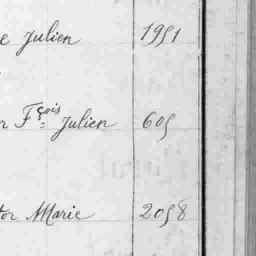 e Julien 1951
r Fçois Julien 605
tor Marie 2058